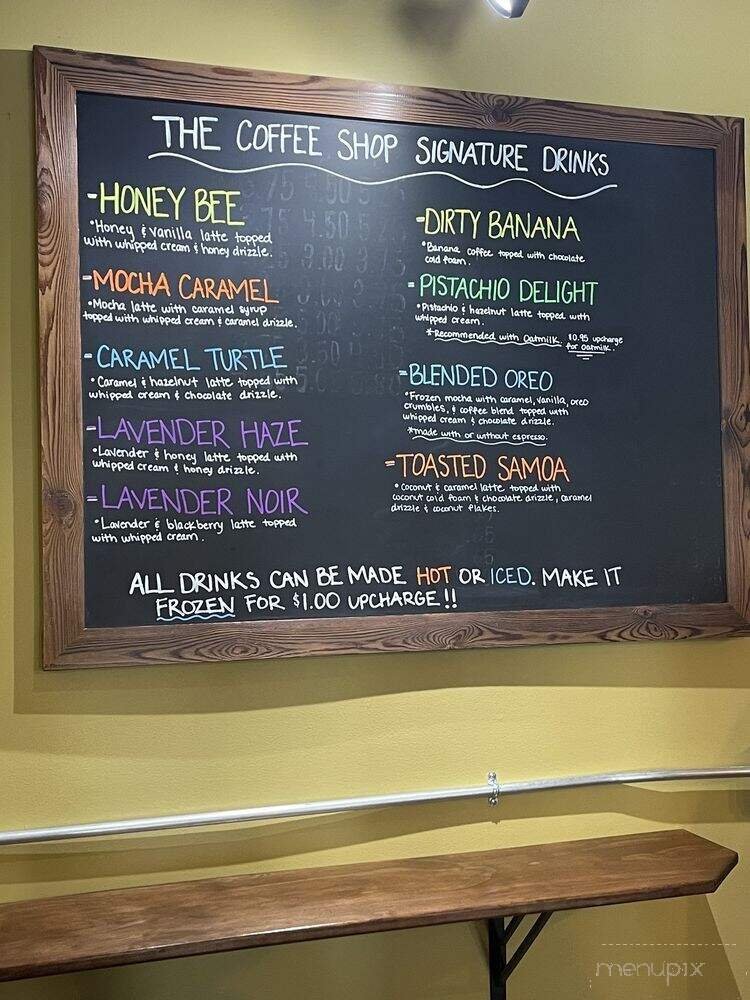 THE COFFEE SHOP SIGNATURE DRINKS
-HONEY BEE
•Honey & vanilla latte topped
with whipped cream & honey drizzle.
-MOCHA CARAMEL
•Mocha latte with caramel syrup
topped with whipped cream & caramel drizzle.
-CARAMEL TURTLE
•Caramel & hazelnut latte topped with
whipped cream & chocolate drizzle.
-LAVENDER HAZE
•Lavender & honey latte topped with
whipped cream & honey drizzle.
-LAVENDER NOIR
•Lavender & blackberry latte topped
with whipped cream.
-DIRTY BANANA
•Banana coffee topped with chocolate
cold foam.
-PISTACHIO DELIGHT
•Pistachio & hazelnut latte topped with
whipped cream.
*Recommended with Oatmilk. $0.95 upcharge
for oatmilk.
-BLENDED OREO
•Frozen mocha with caramel, vanilla, oreo
crumbles, & coffee blend topped with
whipped cream & chocolate drizzle.
*made with or without espresso.
-TOASTED SAMOA
•Coconut & caramel latte topped with
coconut cold foam & chocolate drizzle, caramel
drizzle & coconut flakes.
ALL DRINKS CAN BE MADE HOT OR ICED. MAKE IT
FROZEN FOR $1.00 UPCHARGE!!
menupix